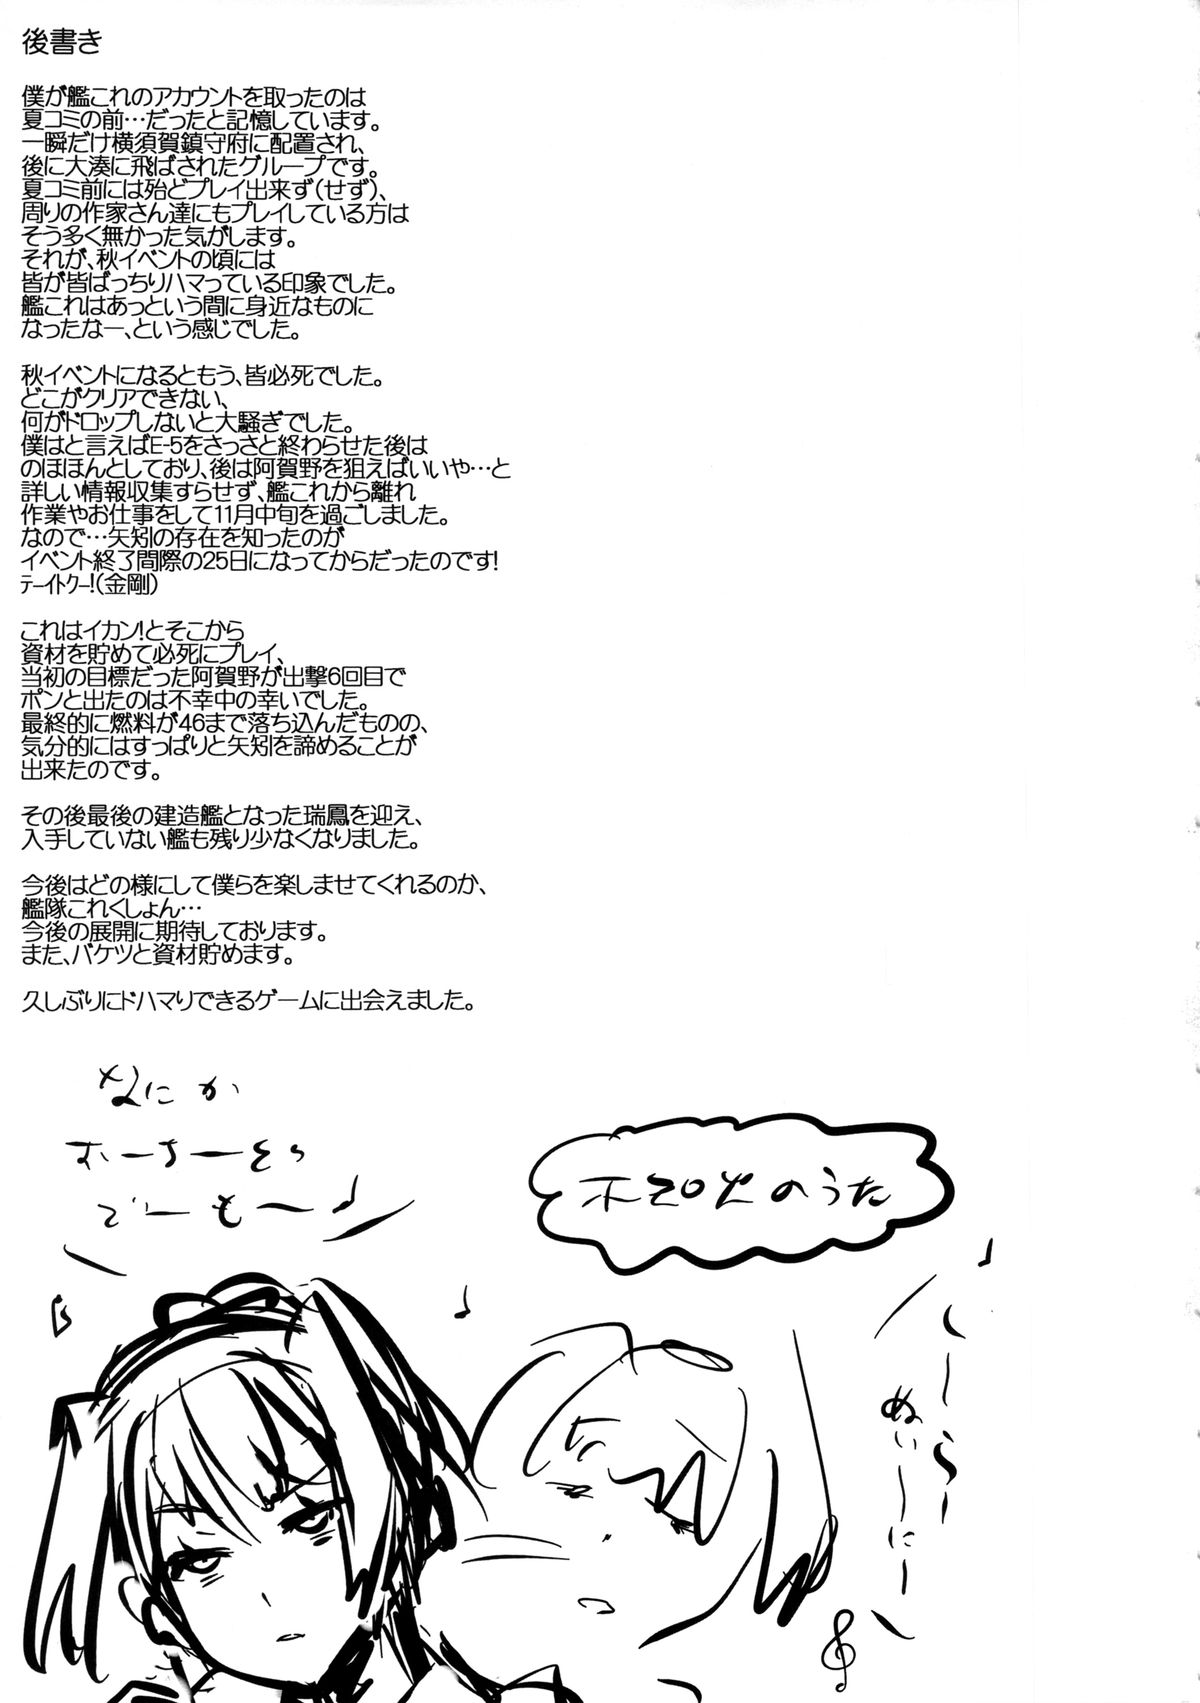 後書き
僕が艦これのアカウントを取ったのは
夏コミの前…だったと記憶しています。
一瞬だけ横須賀鎮守府に配置され、
後に大湊に飛ばされたグループです。
夏コミ前には殆どプレイ出来ず(せず)、
周りの作家さん達にもプレイしている方は
そう多く無かった気がします。
それが、秋イベントの頃には
皆が皆ばっちりハマっている印象でした。
艦これはあっという間に身近なものに
なったなー、という感じでした。
秋イベントになるともう、皆必死でした。
どこがクリアできない、
何がドロップしないと大騒ぎでした。
僕はと言えばE-5をさっさと終わらせた後は
のほほんとしており、後は阿賀野を狙えばいいや…と
詳しい情報収集すらせず、艦これから離れ
作業やお仕事をして11月中旬を過ごしました。
なので…矢矧の存在を知ったのが
イベント終了間際の25日になってからだったのです!
テーイトクー!(金剛)
これはイカン!とそこから
資材を貯めて必死にプレイ、
当初の目標だった阿賀野が出撃6回目で
ポンと出たのは不幸中の幸いでした。
最終的に燃料が46まで落ち込んだものの、
気分的にはすっぱりと矢矧を諦めることが
出来たのです。
その後最後の建造艦となった瑞鳳を迎え、
入手していない艦も残り少なくなりました。
今後はどの様にして僕らを楽しませてくれるのか、
艦隊これくしょん…
今後の展開に期待しております。
また、バケツと資材貯めます。
久しぶりにドハマりできるゲームに出会えました。
なにか
おーちーそら
でーも〜♪
のうた
しーらー
ぬいーにー